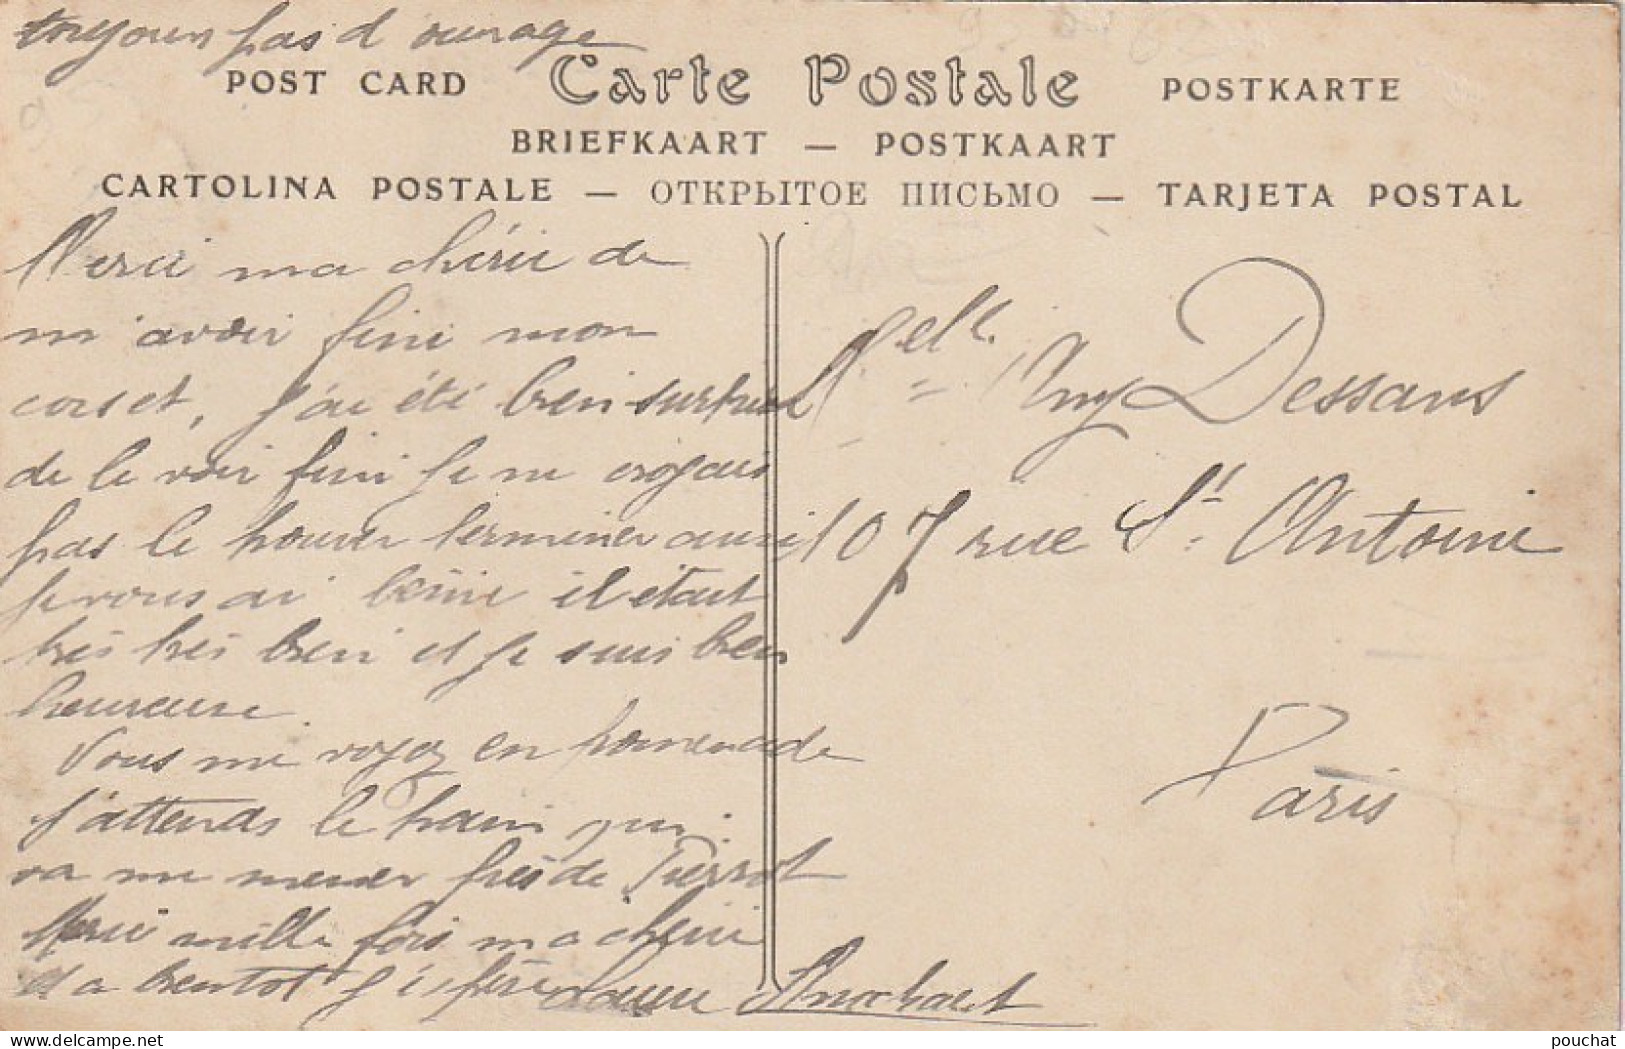 toujours pas d ouvrage
POST CARD Carte Postale POSTKARTE
BRIEFKAART — POSTKAART
CARTOLINA POSTALE — ОТКРЫТОЕ ПИСЬМО — TARJETA POSTAL
Merci ma chérie de
m'avoir fini mon
corset, j'ai été bien surprise
de le voir fini je ne croyais
pas le trouver terminer aussi
je vous ai bénie il était
très très bien et je suis bien
heureuse
Vous me voyez en promenade
j'attends le train qui
va me mener près de Pierrot
Merci mille fois ma chérie
et a bientot j'espère
Melle Dessans
107 rue St Antoine
Paris
pouchat